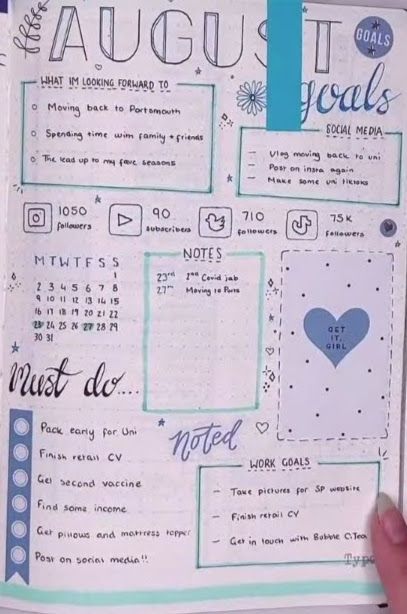 AUGUST
GOALS
goals
WHAT IM LOOKING FORWARD TO
Moving back to Portsmouth
Spending time with family + friends
The lead up to my fave seasons
SOCIAL MEDIA
- Vlog moving back to uni
- Post on insta again
- Make some uni tiktoks
1050 followers
90 subscribers
710 followers
75K followers
M T W T F S S
1
2 3 4 5 6 7 8
9 10 11 12 13 14 15
16 17 18 19 20 21 22
23 24 25 26 27 28 29
30 31
NOTES
23rd 2nd Covid jab
27th Moving to
GET
IT,
GIRL
Must do....
Pack early for Uni
Finish retail CV
Get second vaccine
Find some income
Get pillows and mattress topper
Post on social media!!
Noted
WORK GOALS
- Take pictures for SP website
- Finish retail CV
- Get in touch with Bubble C.Tea